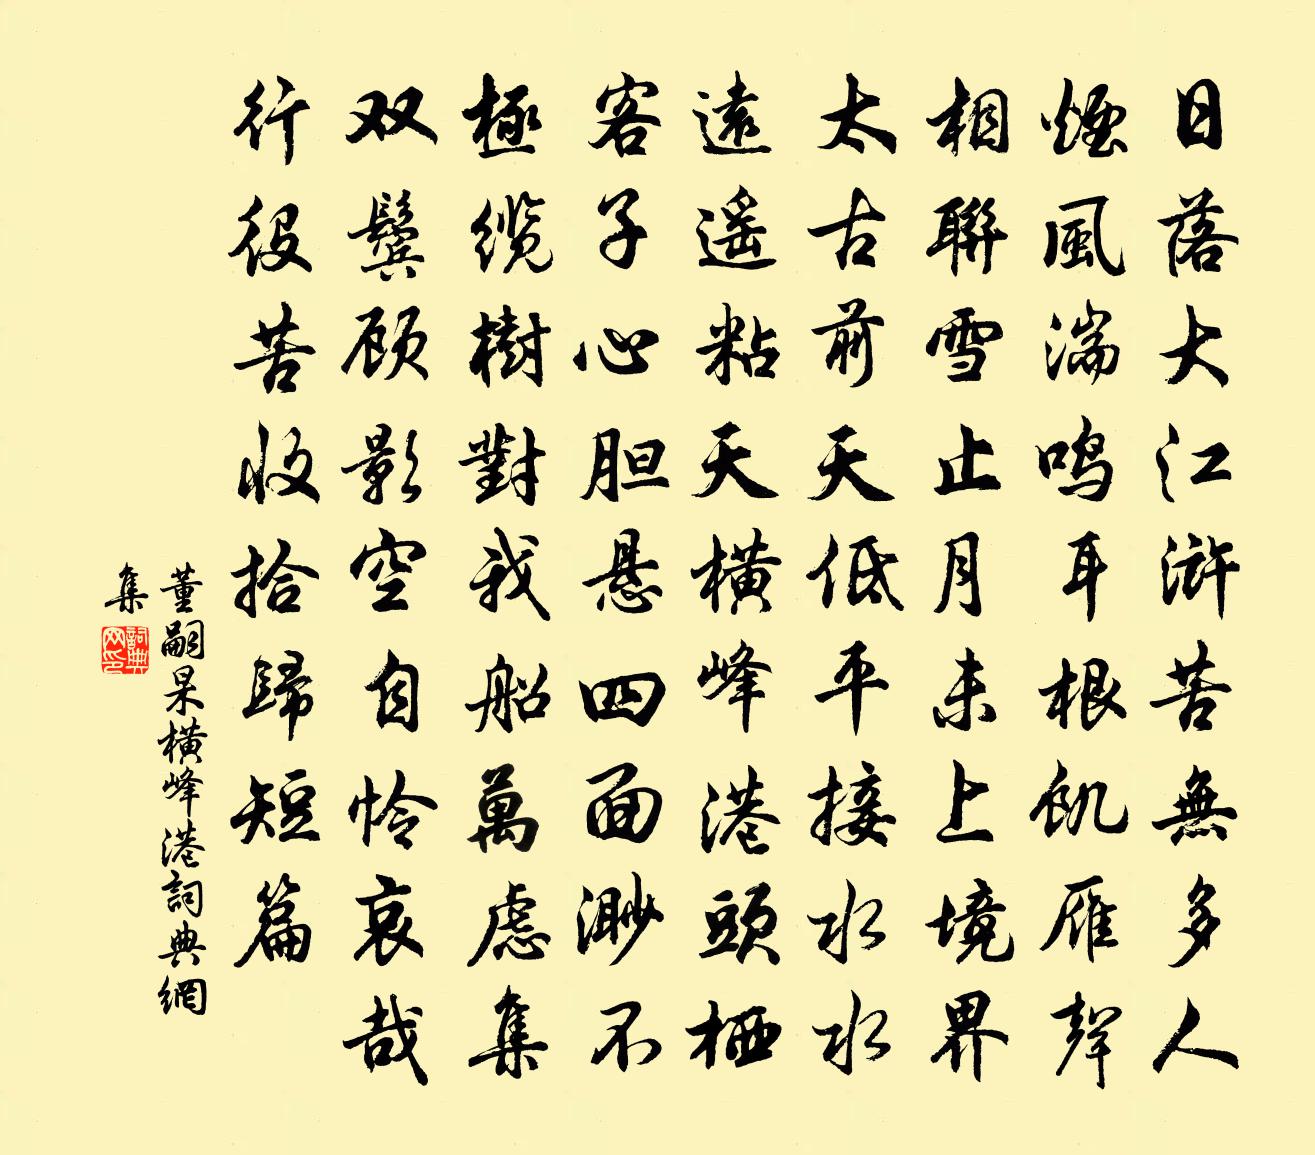 日落大江滸苦無多人
煙風湍鸣耳根飢雁聲
相聯雪止月未上境界
太古前天低平接水水
遠遥粘天橫峰港頭栖
客子心胆悬四面渺不
極缆樹對我船萬慮集
双鬓顾影空自怜哀哉
行役苦收拾歸短篇
董嗣杲橫峰港詞典網
集
詞典网印